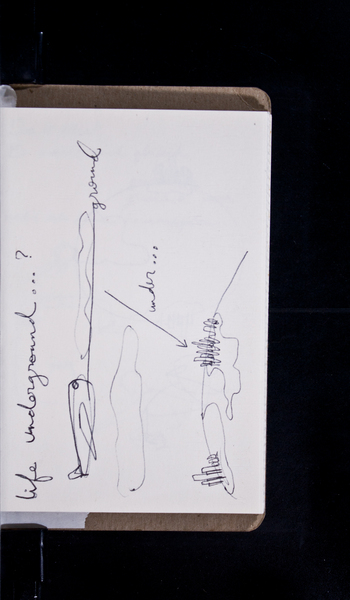 life underground...?
ground
under...